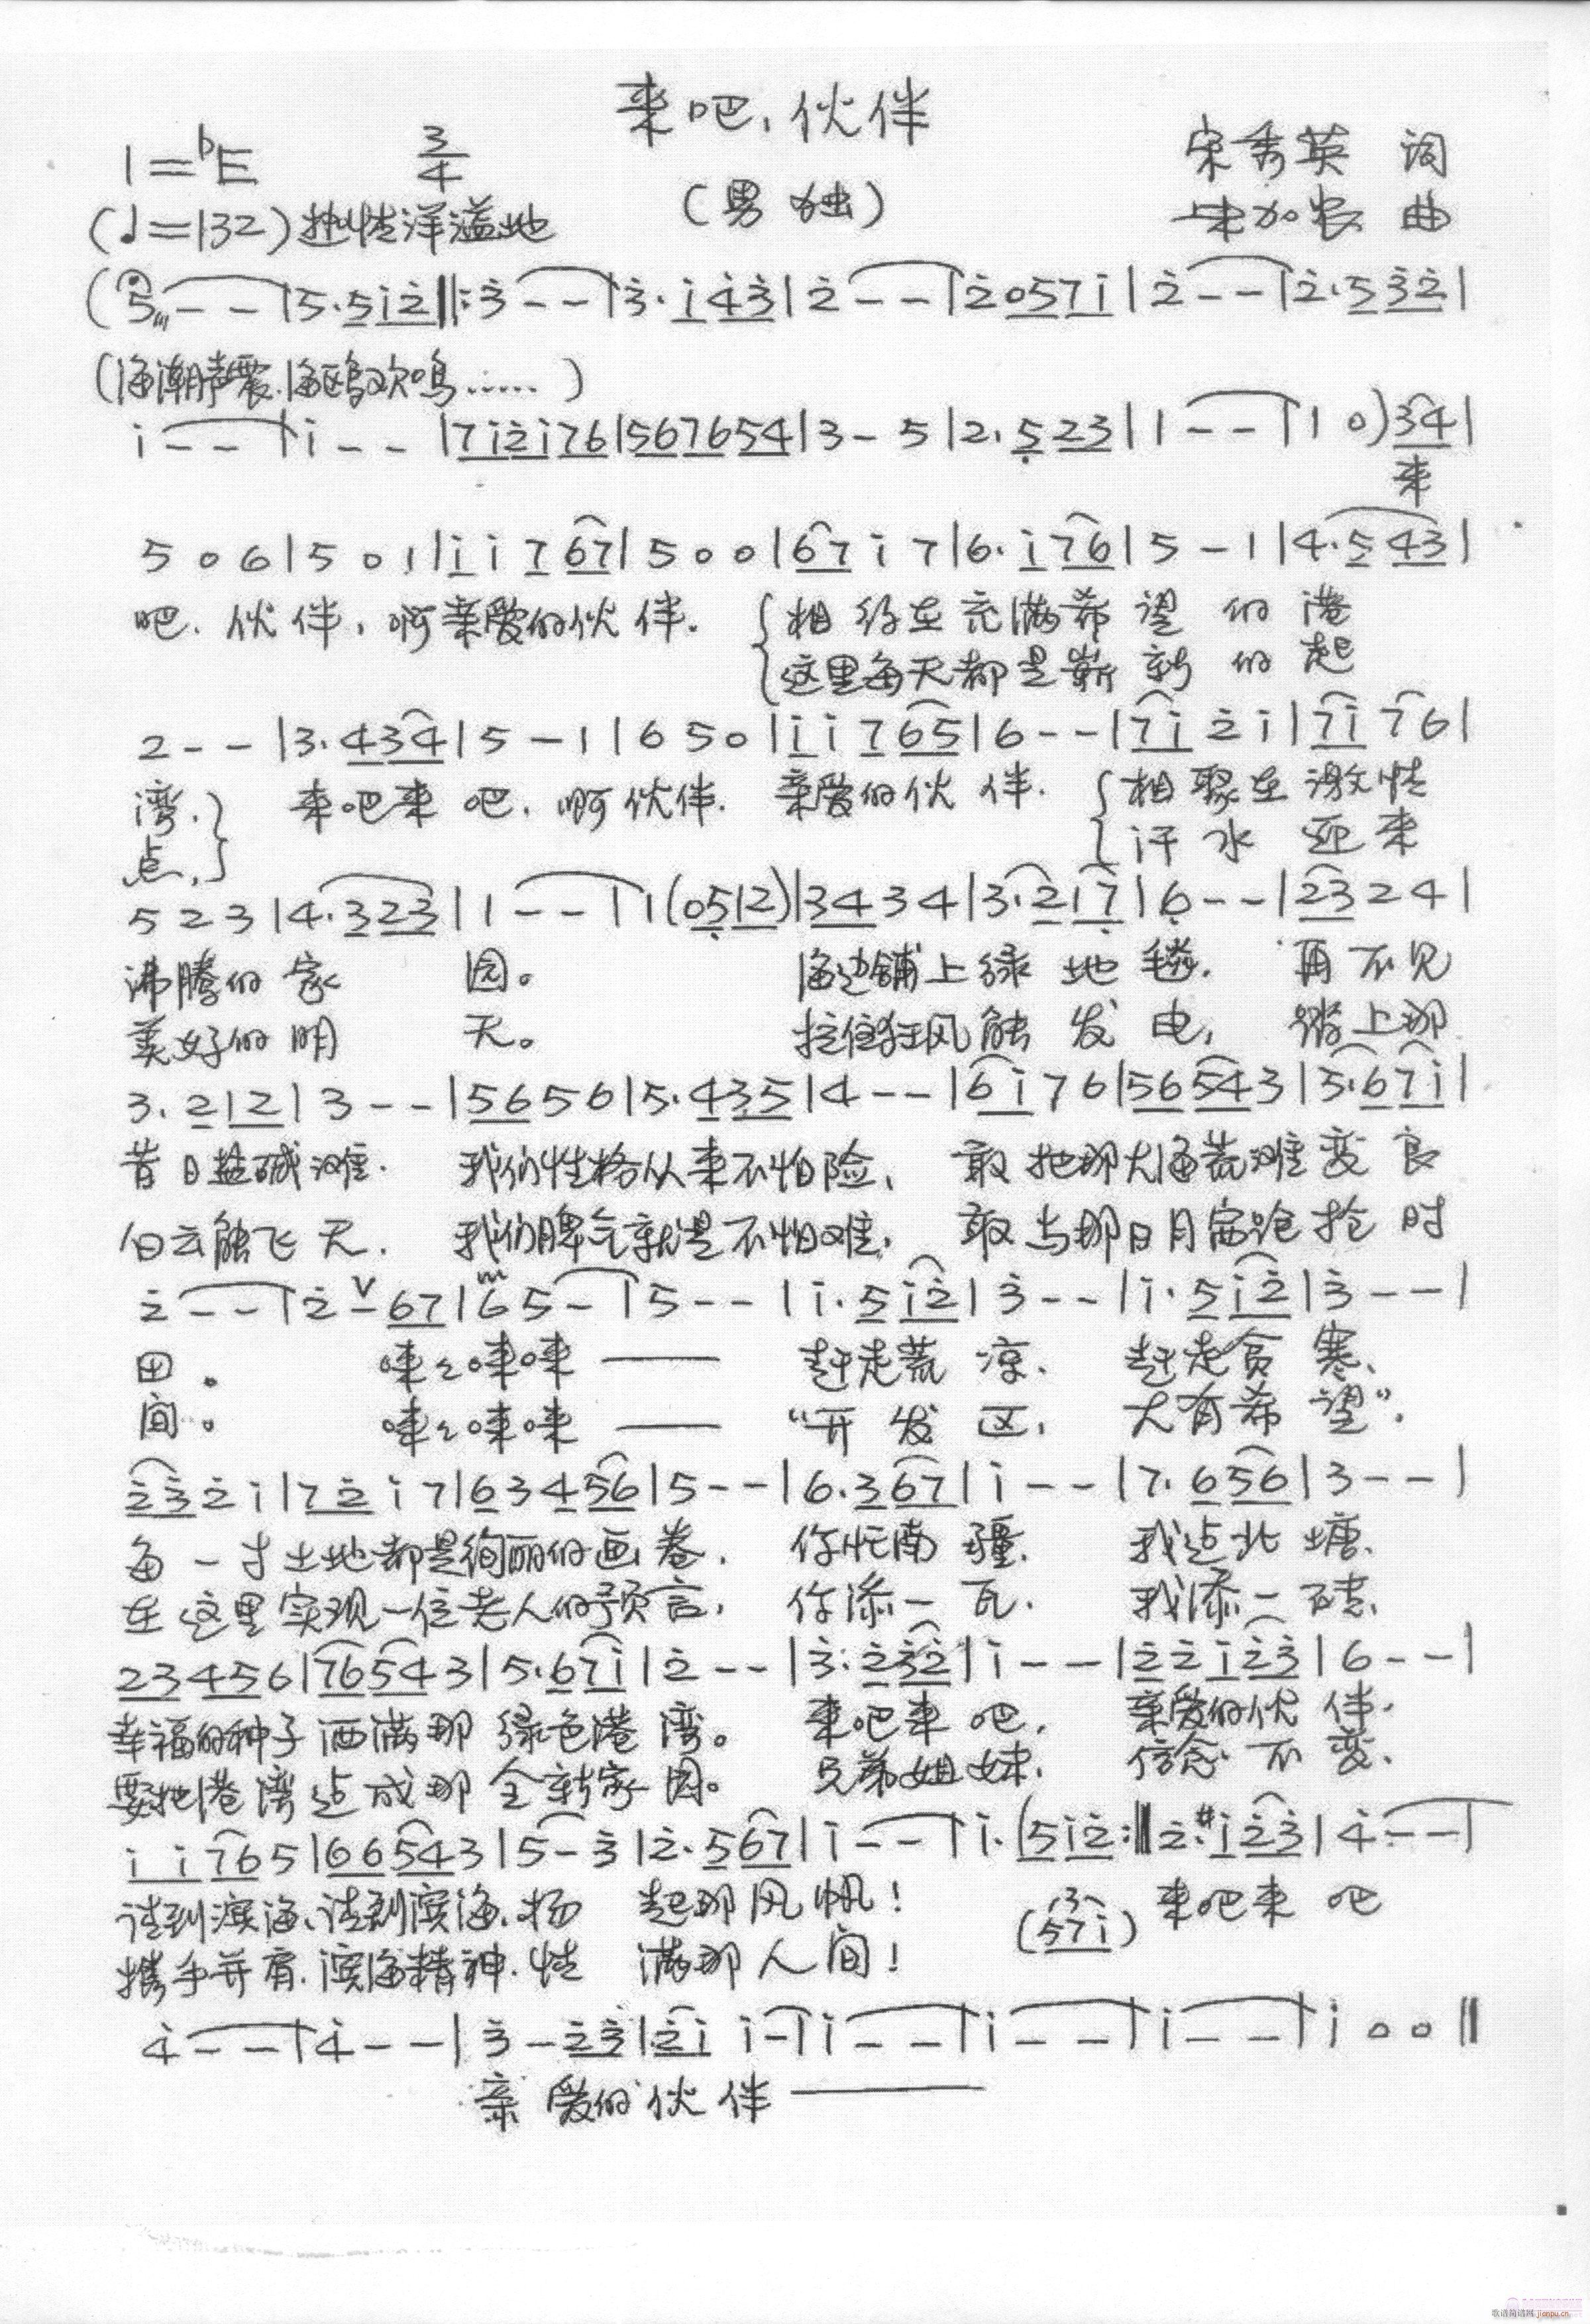 来吧，伙伴
1=♭E 3/4 宋秀英 词
(♩=132)热情洋溢地 (男独) 加农 曲
(5 - - |5.5i̇2̇‖:3̇ - - |3̇.i̇4̇3̇|2̇ - - |2̇057i̇|2̇ - - |2̇.53̇2̇|
(海潮声震.海鸥欢鸣……)
i̇ - - |i̇ - - |7i̇2̇i̇76|567654|3 - 5|2.5̣23|1 - - |1 0)34|
来
5 0 6|5 0 1|i̇ i̇ 7 67|5 0 0|67 i̇ 7|6.i̇76|5 - 1|4.543|
吧.伙伴,啊亲爱的伙伴. {相约在充满希望的港
{这里每天都是崭新的起
2 - - |3.434|5 - 1|6 5 0|i̇ i̇ 7 65|6 - - |7i̇ 2̇ i̇|7i̇ 7 6|
湾.} 来吧来吧.啊伙伴. 亲爱的伙伴. {相聚在激情
点.} {汗水迎来
5 2 3|4.323|1 - - |1(05̣12)|3434|3.217̣|6̣ - - |2324|
沸腾的家园。 海边铺上绿地毯. 再不见
美好的明天。 拉住狂风能发电, 踏上那
3.212|3 - - |5656|5.435|4 - - |6i̇76|56543|5.67i̇|
昔日盐碱滩. 我们性格从来不怕险、 敢把那大海荒滩变良
白云能飞天. 我们脾气就是不怕难, 敢与那日月宙跑抢时
2̇ - - |2̇ - 67|65 - |5 - - |i̇.5i̇2̇|3̇ - - |i̇.5i̇2̇|3̇ - - |
田。 唻唻唻唻—— 赶走荒凉、 赶走贫寒、
间。 唻唻唻唻—— “开发区, 大有希望”.
2̇3̇2̇i̇|72̇i̇7|63456|5 - - |6.367|i̇ - - |7.656|3 - - |
每一寸土地都是绚丽的画卷. 你忙南疆. 我点北塘.
在这里实现一位老人的预言, 你添一瓦. 我添一砖、
23456|76543|5.67i̇|2̇ - - |3̇.2̇3̇2̇|i̇ - - |2̇2̇i̇2̇3̇|6 - - |
幸福的种子洒满那绿色港湾。 来吧来吧, 亲爱的伙伴.
要把港湾点成那全新家园。 兄弟姐妹, 信念不变.
i̇ i̇765|66543|5 - 3̇|2̇.567|i̇ - - |i̇.(5i̇2̇:‖2̇.#i̇2̇3̇|4̇ - - |
请到滨海、请到滨海.扬起那风帆! (57i̇) 来吧来吧
携手并肩.滨海精神.情满那人间!
4̇ - - |4̇ - - |3̇ - 2̇3̇|2̇i̇ i̇ - |i̇ - - |i̇ - - |i̇ - - |i̇ 0 0‖
亲爱的伙伴——
歌谱简谱网 jianpu.cn